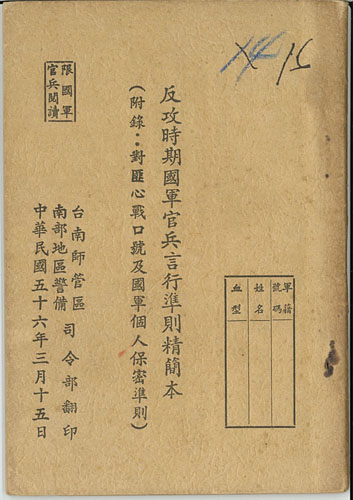 14 15
反攻時期國軍官兵言行準則精簡本
(附錄：對匪心戰口號及國軍個人保密準則)
限國軍
官兵閱讀
台南師管區
南部地區警備
司令部翻印
中華民國五十六年三月十五日
軍籍號碼
姓名
血型